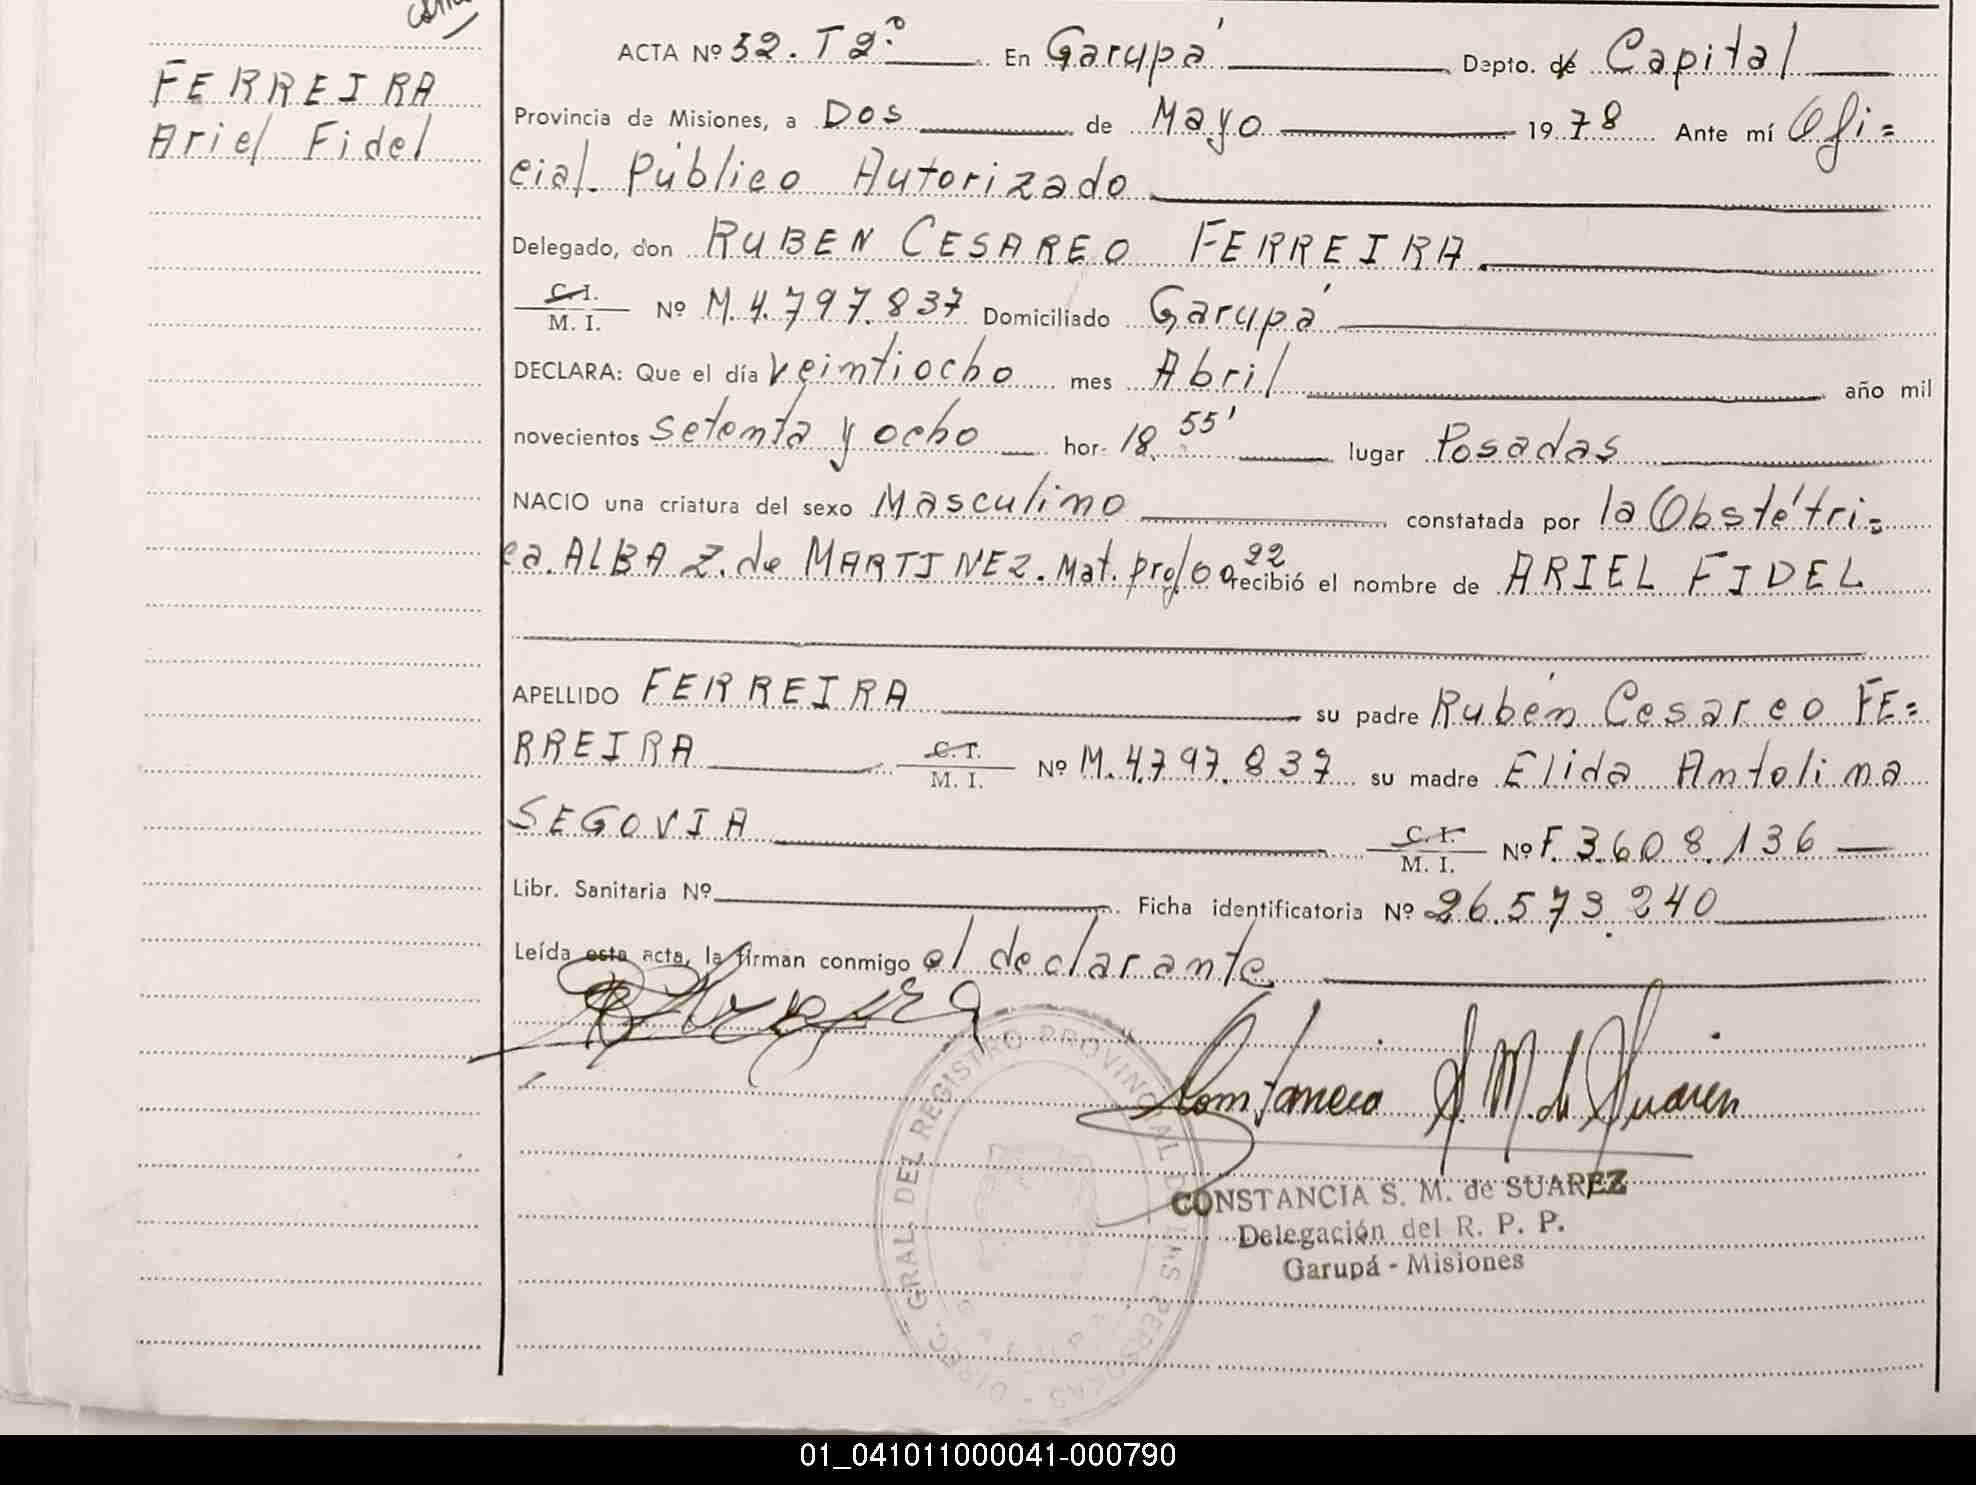 FERREIRA
Ariel Fidel
ACTA Nº 32. T 2º. En Garupá Depto. de Capital
Provincia de Misiones, a Dos de Mayo 1978 Ante mí Ofi=
cial Público Autorizado
Delegado, don RUBEN CESAREO FERREIRA.
C. I.
M. I. Nº M. 4.797.837 Domiciliado Garupá
DECLARA: Que el día veintiocho mes Abril año mil
novecientos setenta y ocho hor. 18.55' lugar Posadas
NACIO una criatura del sexo Masculino constatada por la Obstétri=
ca. ALBA Z. de MARTINEZ. Mat. prof. 0022 recibió el nombre de ARIEL FIDEL
APELLIDO FERREIRA su padre Rubén Cesareo FE=
RREIRA C. I.
M. I. Nº M. 4.797.837 su madre Elida Antolina
SEGOVIA C. I.
M. I. Nº F. 3.608.136
Libr. Sanitaria Nº Ficha identificatoria Nº 26.573.240
Leída esta acta, la firman conmigo el declarante
Constancia S. M. de Suarez
CONSTANCIA S. M. de SUAREZ
Delegación del R. P. P.
Garupá - Misiones
DIREC. GRAL. DEL REGISTRO PROVINCIAL DE LAS PERSONAS
01_041011000041-000790